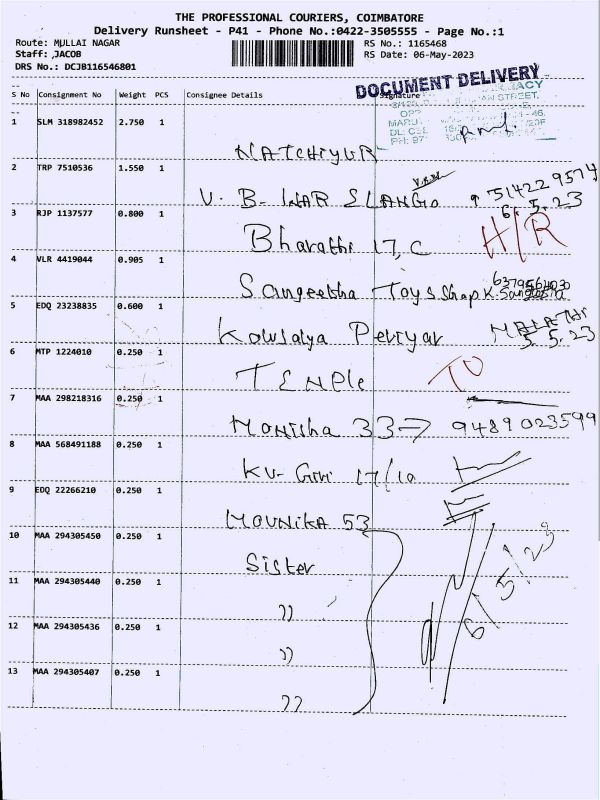 THE PROFESSIONAL COURIERS, COIMBATORE
Delivery Runsheet - P41 - Phone No.:0422-3505555 - Page No.:1
Route: MULLAI NAGAR RS No.: 1165468
Staff: JACOB RS Date: 06-May-2023
DRS No.: DCJB116546801
DOCUMENT DELIVERY
S No Consignment No Weight PCS Consignee Details Signature
1 SLM 318982452 2.750 1
NATCHIYUR
2 TRP 7510536 1.550 1
V. B. 9514229574
6.5.23
3 RJP 1137577 0.800 1
Bharathi 17, C H/R
4 VLR 4419044 0.905 1
Sangeetha Toys Shop
5 EDQ 23238835 0.600 1
Kowsalya Periyar
5.5.23
6 MTP 1224010 0.250 1
TEMPle
7 MAA 298218316 0.250 1
Monisha 33 → 9489023599
8 MAA 568491188 0.250 1
KV- Giri 17/10
9 EDQ 22266210 0.250 1
MOUNIKA 53
10 MAA 294305450 0.250 1
Sister
6/5/23
11 MAA 294305440 0.250 1
"
12 MAA 294305436 0.250 1
"
13 MAA 294305407 0.250 1
"